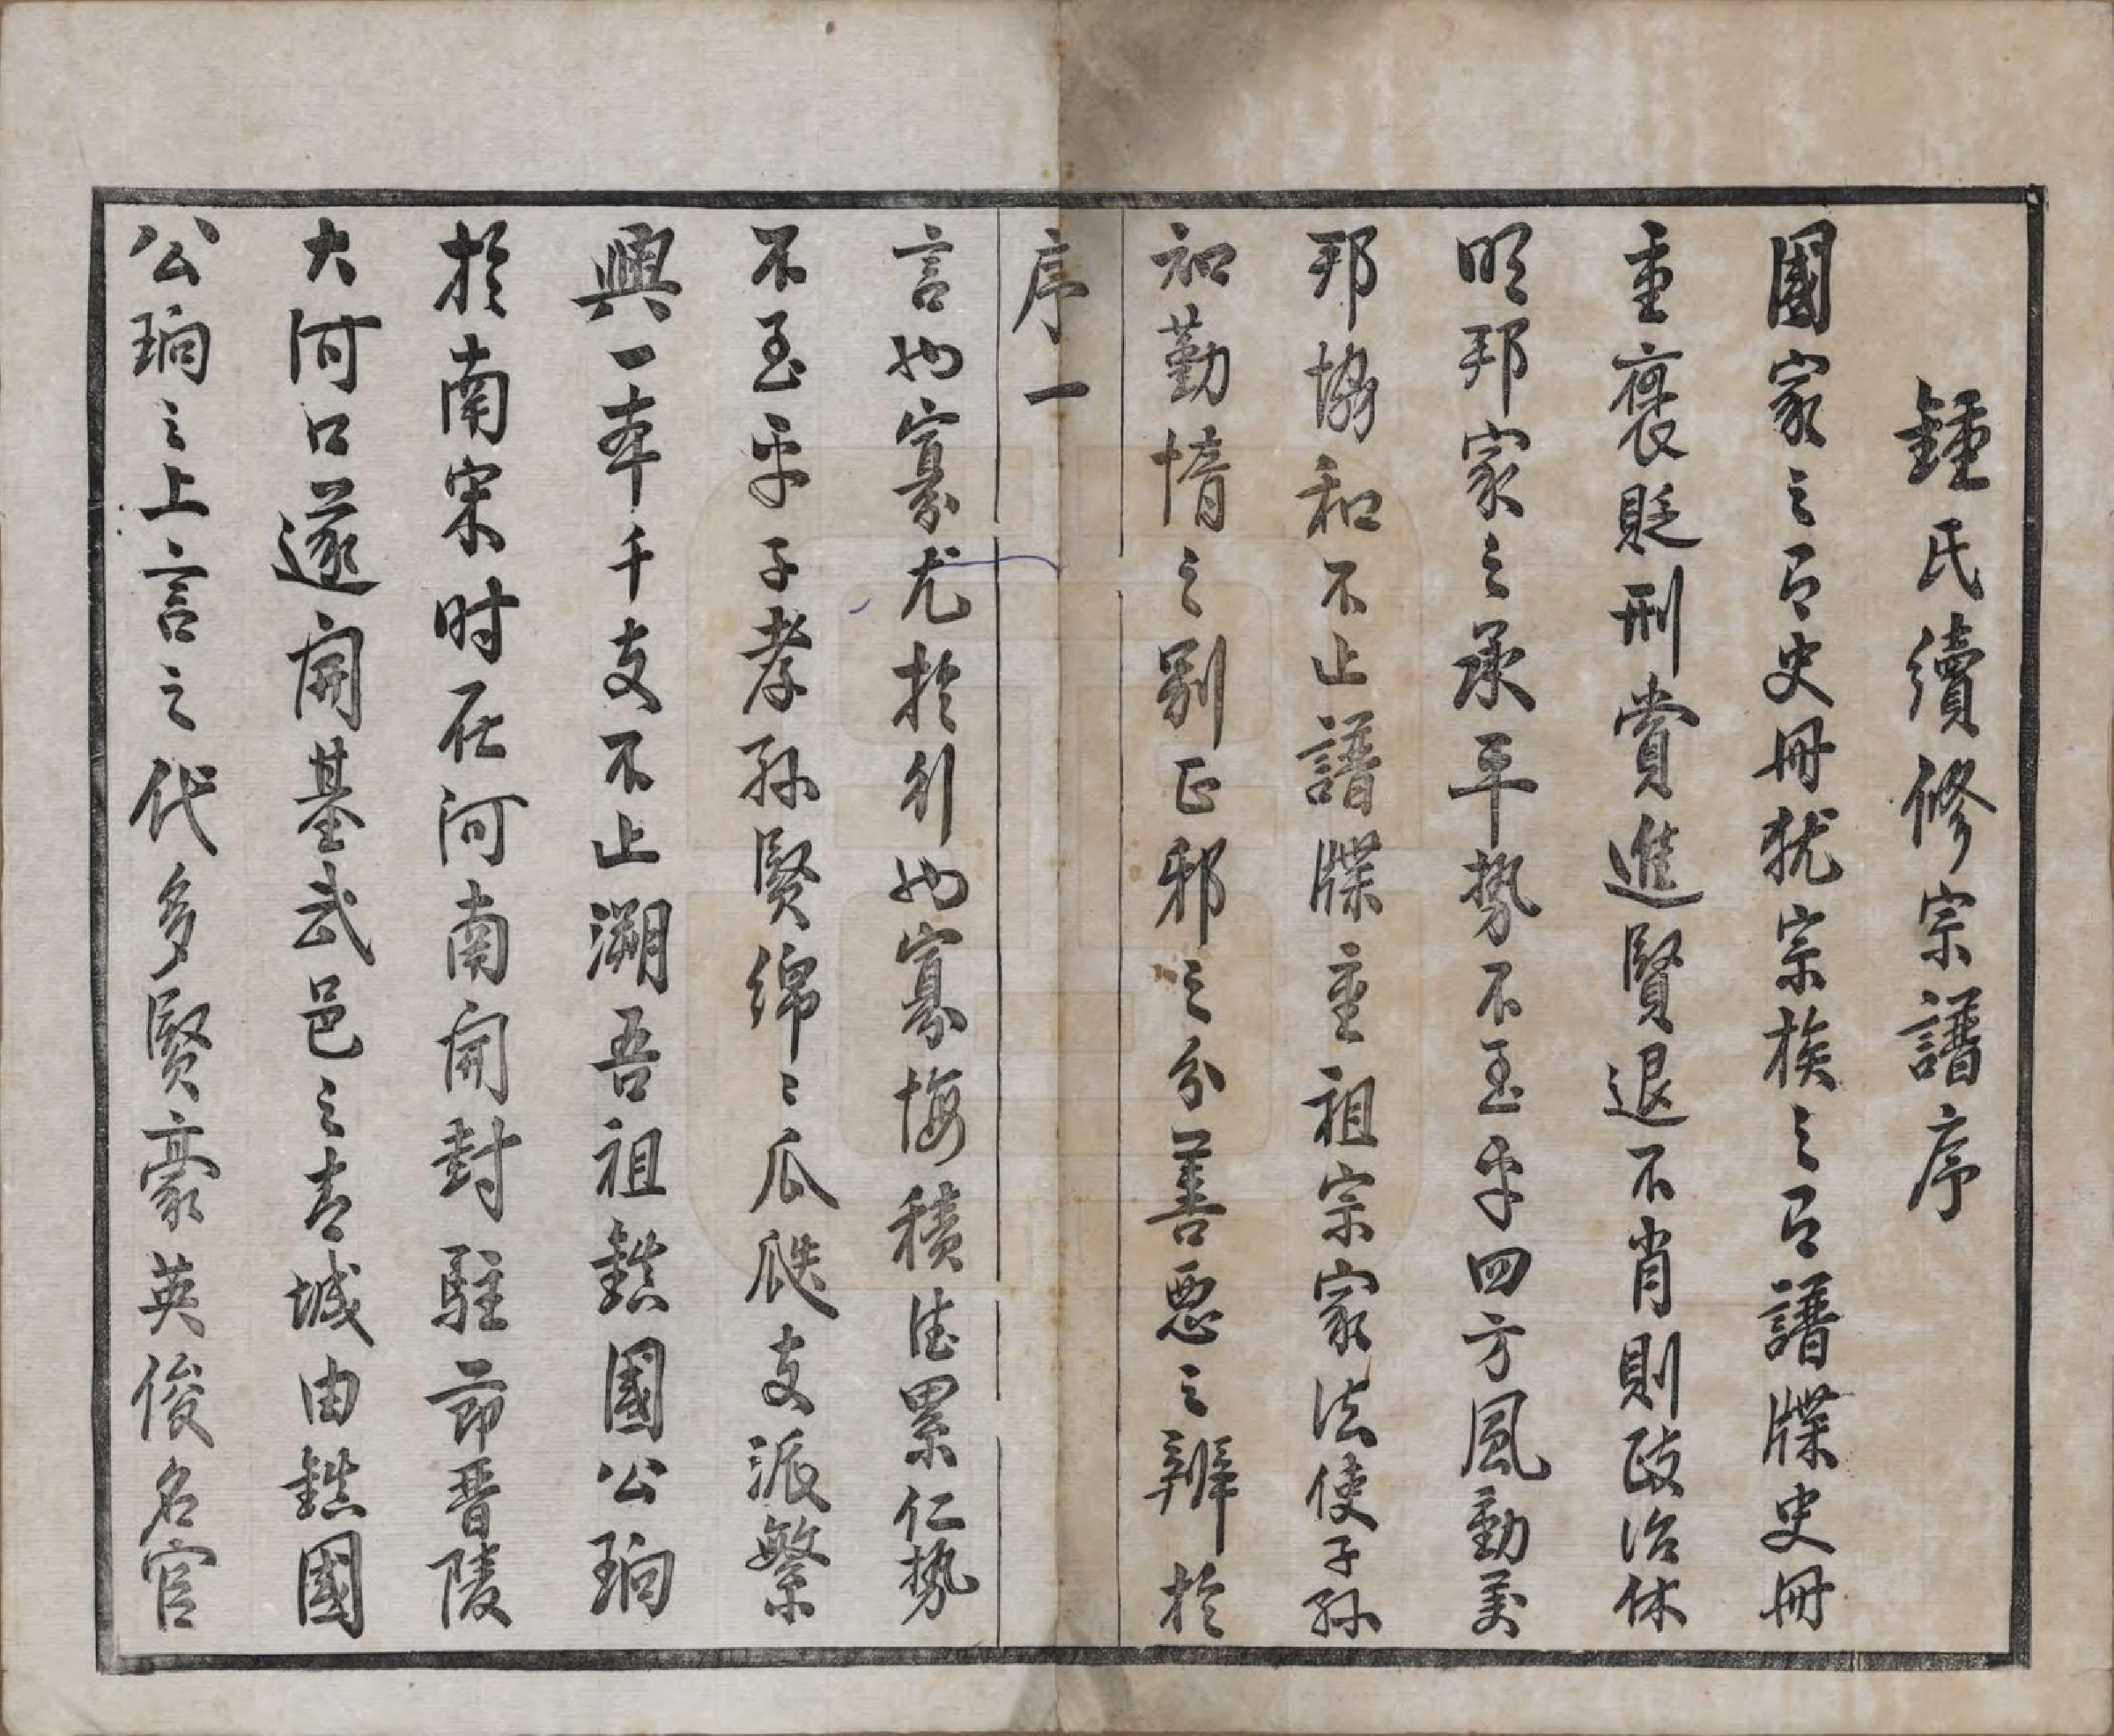 鍾氏續修宗譜序
國家之有史冊猶宗族之有譜牒史冊
重褒貶刑賞進賢退不肖則政治休
明邦家之承平勢不至乎四方風動萬
邦協和不止譜牒重祖宗家法使子孫
知勤惰之别正邪之分善惡之辨於
序一
言也寡尤於行也寡悔積德累仁勢
不至乎子孝孫賢綿〻瓜瓞支派繁
興一本千支不止溯吾祖鎮國公珦
於南宋时在河南開封駐節晋陵
大河口遂開基武邑之青城由鎮國
公珦之上言之代多賢豪英俊名宦